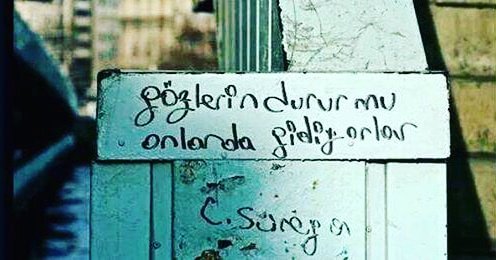 gözlerin durur mu
onlarda gidiyorlar
C. Süreya